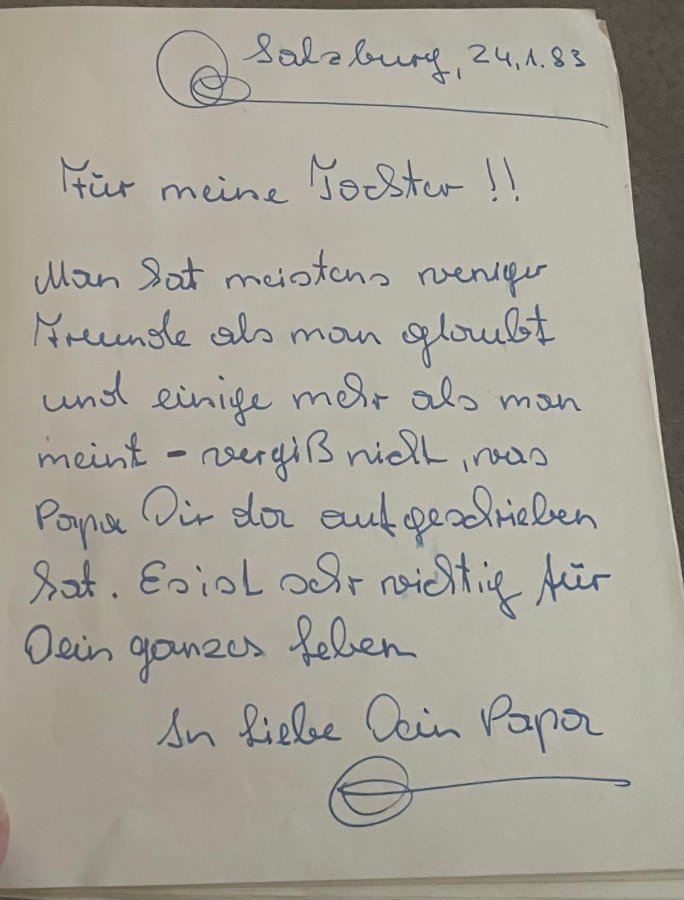 Salzburg, 24.1.83
Für meine Tochter !!
Man hat meistens weniger
Freunde als man glaubt
und einige mehr als man
meint - vergiß nicht, was
Papa Dir da aufgeschrieben
hat. Es ist sehr wichtig für
Dein ganzes Leben
In Liebe Dein Papa